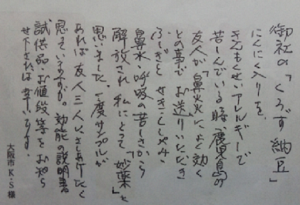 御社の「くろず納豆」
にんにく入りを、
きんもくせいアレルギーで
苦しんでいる時、鹿児島の
友人が「鼻炎によく効く」
との事で お送りいただき
ふしぎと せき・くしゃみ
鼻水・呼吸の苦しさから
解放され 私にとって「妙薬」と
思いました。一度サンプルが
あれば 友人三人にさしあげたく
思っていますが。効能の説明書
試供品・お値段等を お知ら
せ下されば幸いです。
大阪市 K・S 様